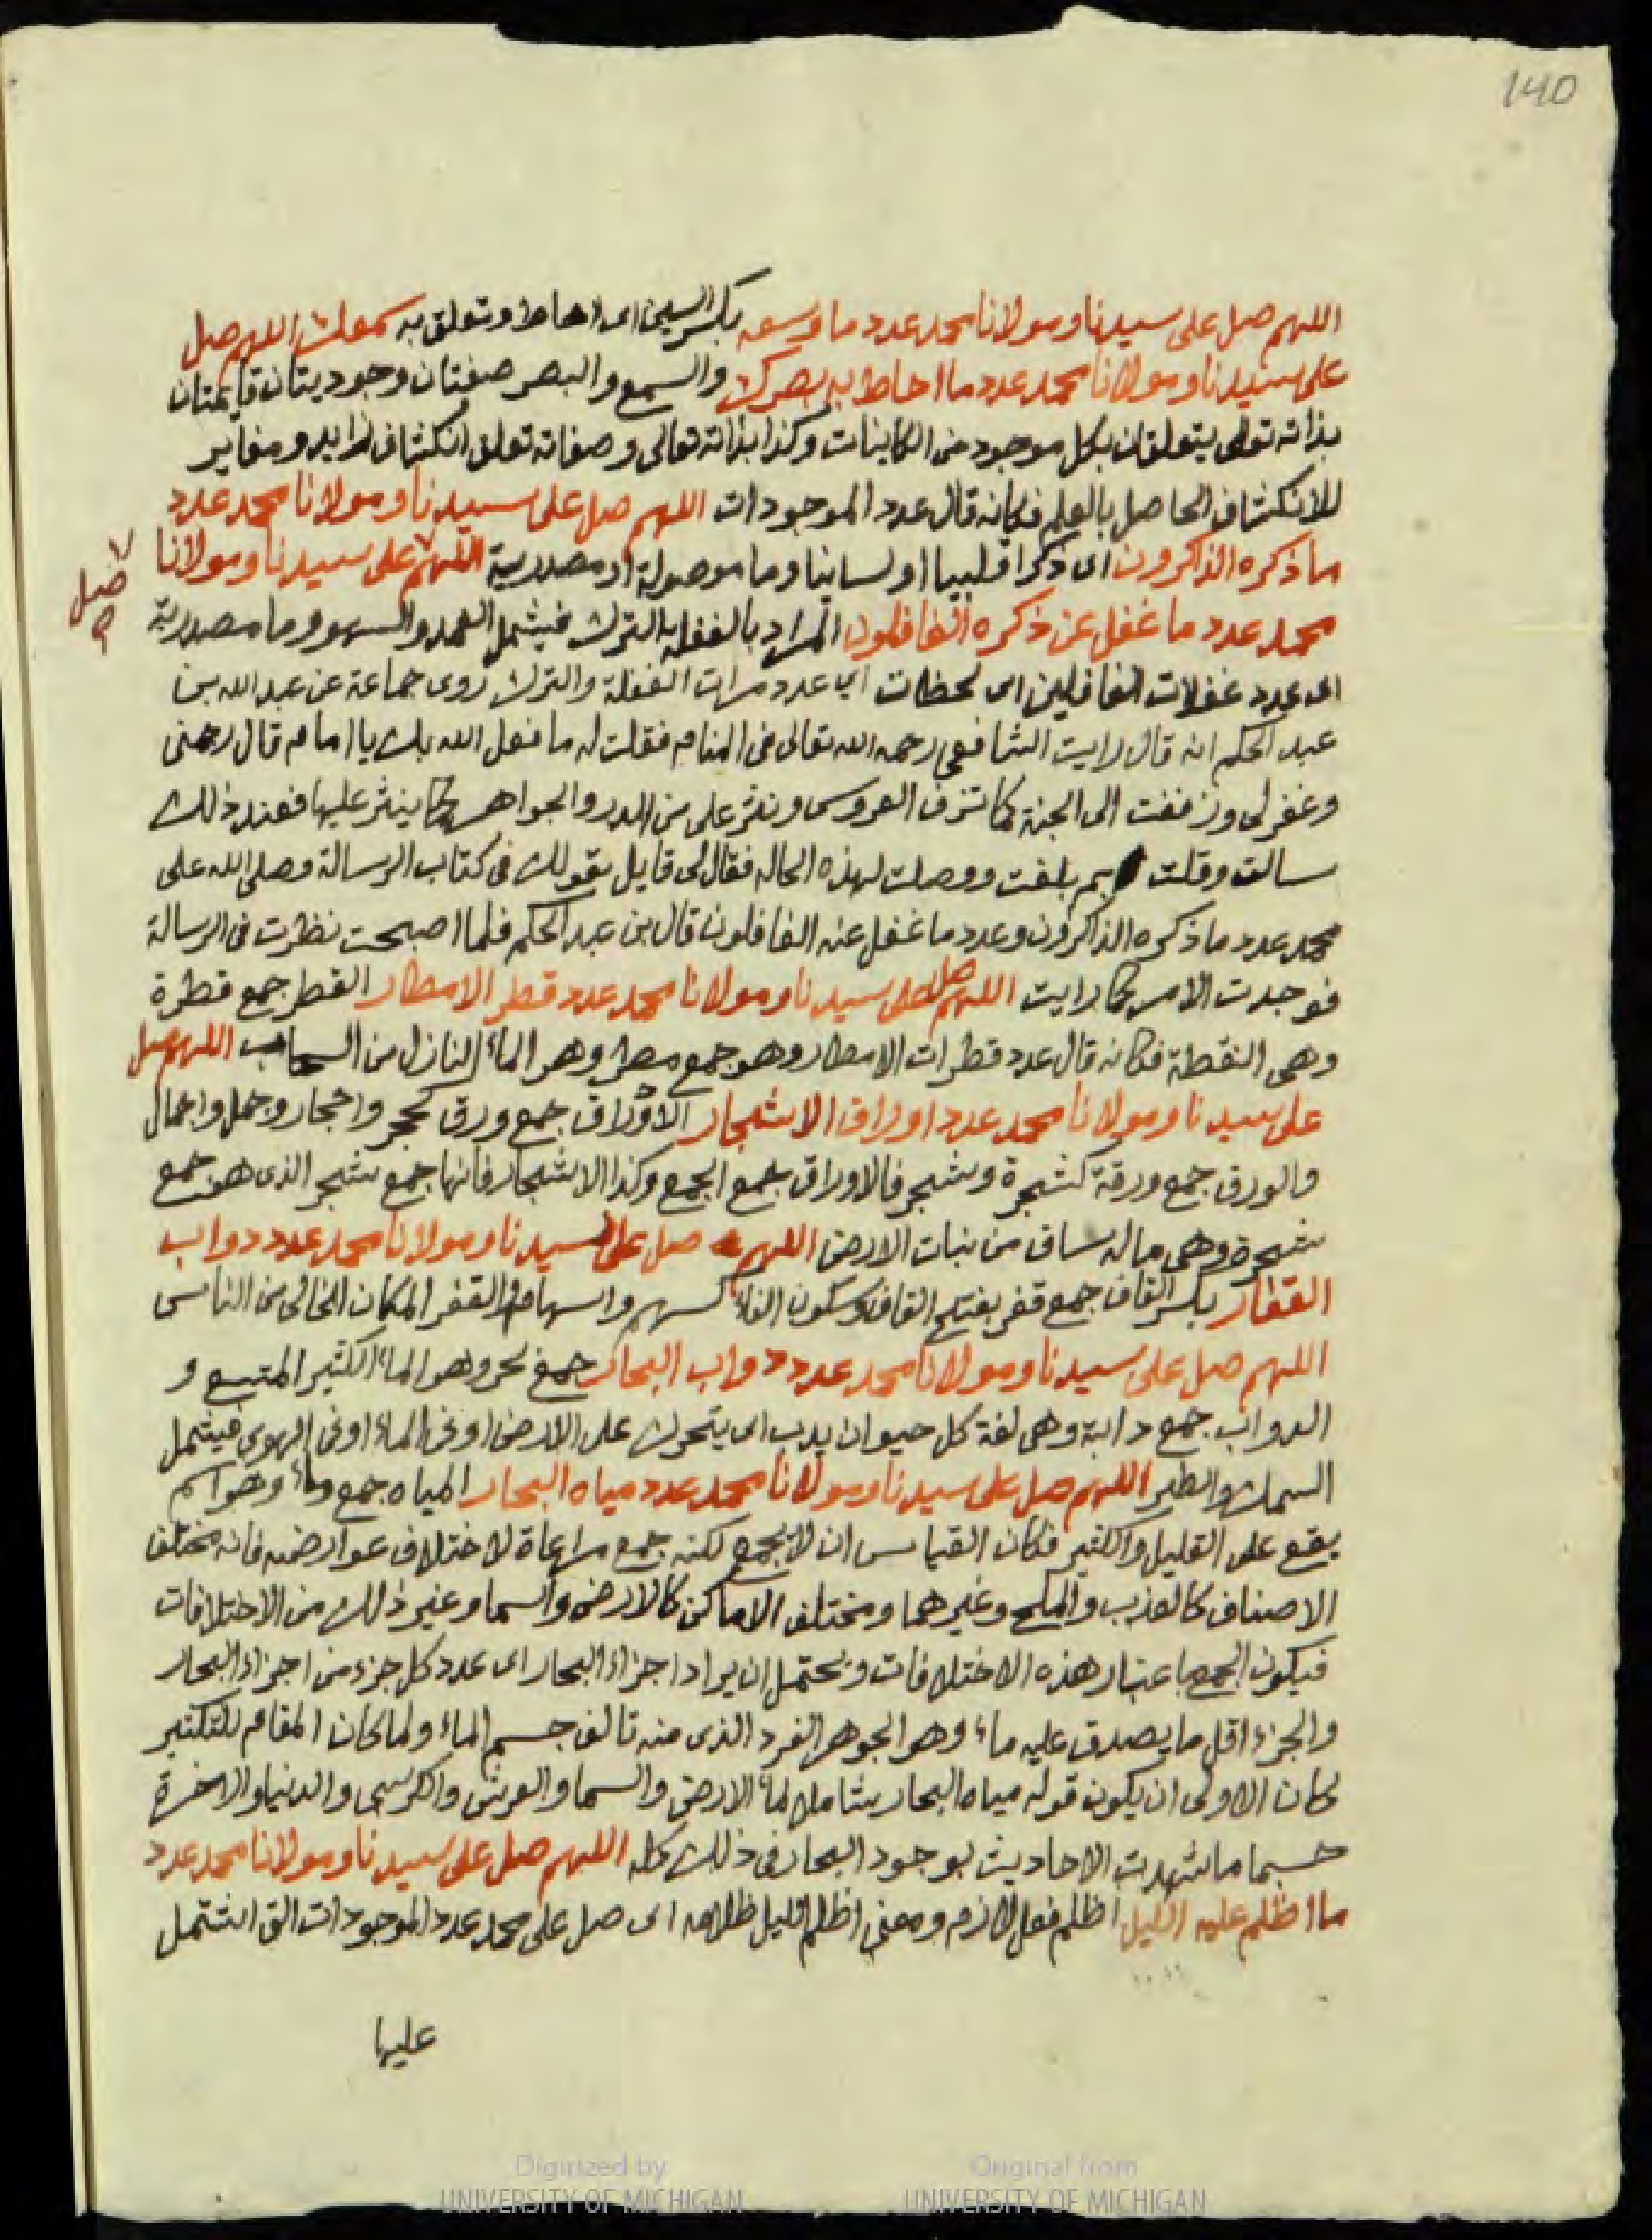 140
اللهم صل على سيدنا ومولانا محمد عدد ما وسعه بكسر السين اى احاط وتعلق به سمعك اللهم صل
على سيدنا ومولانا محمد عدد ما احاط به بصرك والسمع والبصر صفتان وجوديتان قايمتان
بذاته تعالى يتعلقان بكل موجود من الكاينات وكذا بذاته تعالى وصفاته تعلق انكشاف زايد ومغاير
للانكشاف الحاصل بالعلم فكانه قال عدد الموجودات اللهم صل على سيدنا ومولانا محمد عدد
ما ذكره الذاكرون اى ذكرا قلبيا او لسانيا وما موصولة او مصدرية اللهم على سيدنا ومولانا
صل
محمد عدد ما غفل عن ذكره الغافلون المراد بالغفلة الترك فيشمل العمد والسهو وما مصدرية
اى عدد غفلات الغافلين اى لحظات اي عدد مرات الغفلة والترك روى جماعة عن عبد الله بن
عبد الحكم انه قال رايت الشافعى رحمه الله تعالى فى المنام فقلت له ما فعل الله بك يا امام قال رحمنى
وغفر لى وزففت الى الجنة كما تزف العروس ونثر على من الدر والجواهر كما ينثر عليها فعند ذلك
سالت وقلت بم بلغت ووصلت لهذه الحاله فقال لى قايل بقولك فى كتاب الرسالة وصلى الله على
محمد عدد ما ذكره الذاكرون وعدد ما غفل عنه الغافلون قال بن عبد الحكم فلما اصبحت نظرت فى الرسالة
فوجدت الامر كما رايت اللهم صل على سيدنا ومولانا محمد عدد قطر الامطار القطر جمع قطرة
وهى النقطة فكانه قال عدد قطرات الامطار وهو جمع مطر وهو الماء النازل من السحاب اللهم صل
على سيدنا ومولانا محمد عدد اوراق الاشجار الاوراق جمع ورق كحجر واحجار وجمل واجمال
والورق جمع ورقة كشجرة وشجر فالاوراق جمع الجمع وكذا الاشجار فانها جمع شجر الذى هو جمع
شجرة وهى ما له ساق من نبات الارض اللهم صل على سيدنا ومولانا محمد عدد دواب
القفار بكسر القاف جمع قفر بفتح القاف وسكون الفاء كسهم واسهام والقفر المكان الخالى من الناس
اللهم صل على سيدنا ومولانا محمد عدد دواب البحار جمع بحر وهو الماء الكثير المتسع و
الدواب جمع دابة وهى لغة كل حيوان يدب اى يتحرك على الارض او فى الماء او فى الهوى فيشمل
السمك والطير اللهم صل على سيدنا ومولانا محمد عدد مياه البحار المياه جمع ماء وهو اسم
يقع على القليل والكثير فكان القياس ان لا يجمع لكنه جمع مراعاة لاختلاف عوارضه فانه مختلف
الاصناف كالعذب والملح وغيرهما ومختلف الاماكن كالارض والسما وغير ذلك من الاختلافات
فيكون الجمع باعتبار هذه الاختلافات ويحتمل ان يراد اجزاء البحار اى عدد كل جزء من اجزاء البحار
والجزء اقل ما يصدق عليه ماء وهو الجوهر الفرد الذى منه تالف جسم الماء ولما كان المقام للتكثير
كان الاولى ان يكون قوله مياه البحار شاملا لماء الارض والسما والعرش والكرسى والدنيا والاخرة
حسبما ما شهدت الاحاديث بوجود البحار فى ذلك كله اللهم صل على سيدنا ومولانا محمد عدد
ما اظلم عليه الليل اظلم فعل لازم ومعنى اظلم الليل ظلامه اى صل على محمد عدد الموجودات التى اشتمل
عليها
Digitized by
UNIVERSITY OF MICHIGAN
Original from
UNIVERSITY OF MICHIGAN